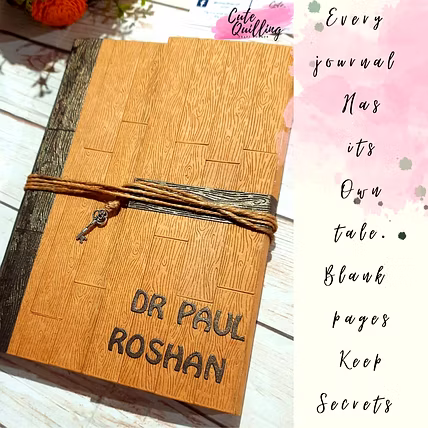 Cute
Quilling
DR PAUL
ROSHAN
Every
journal
Has
its
Own
tale.
Blank
pages
Keep
Secrets